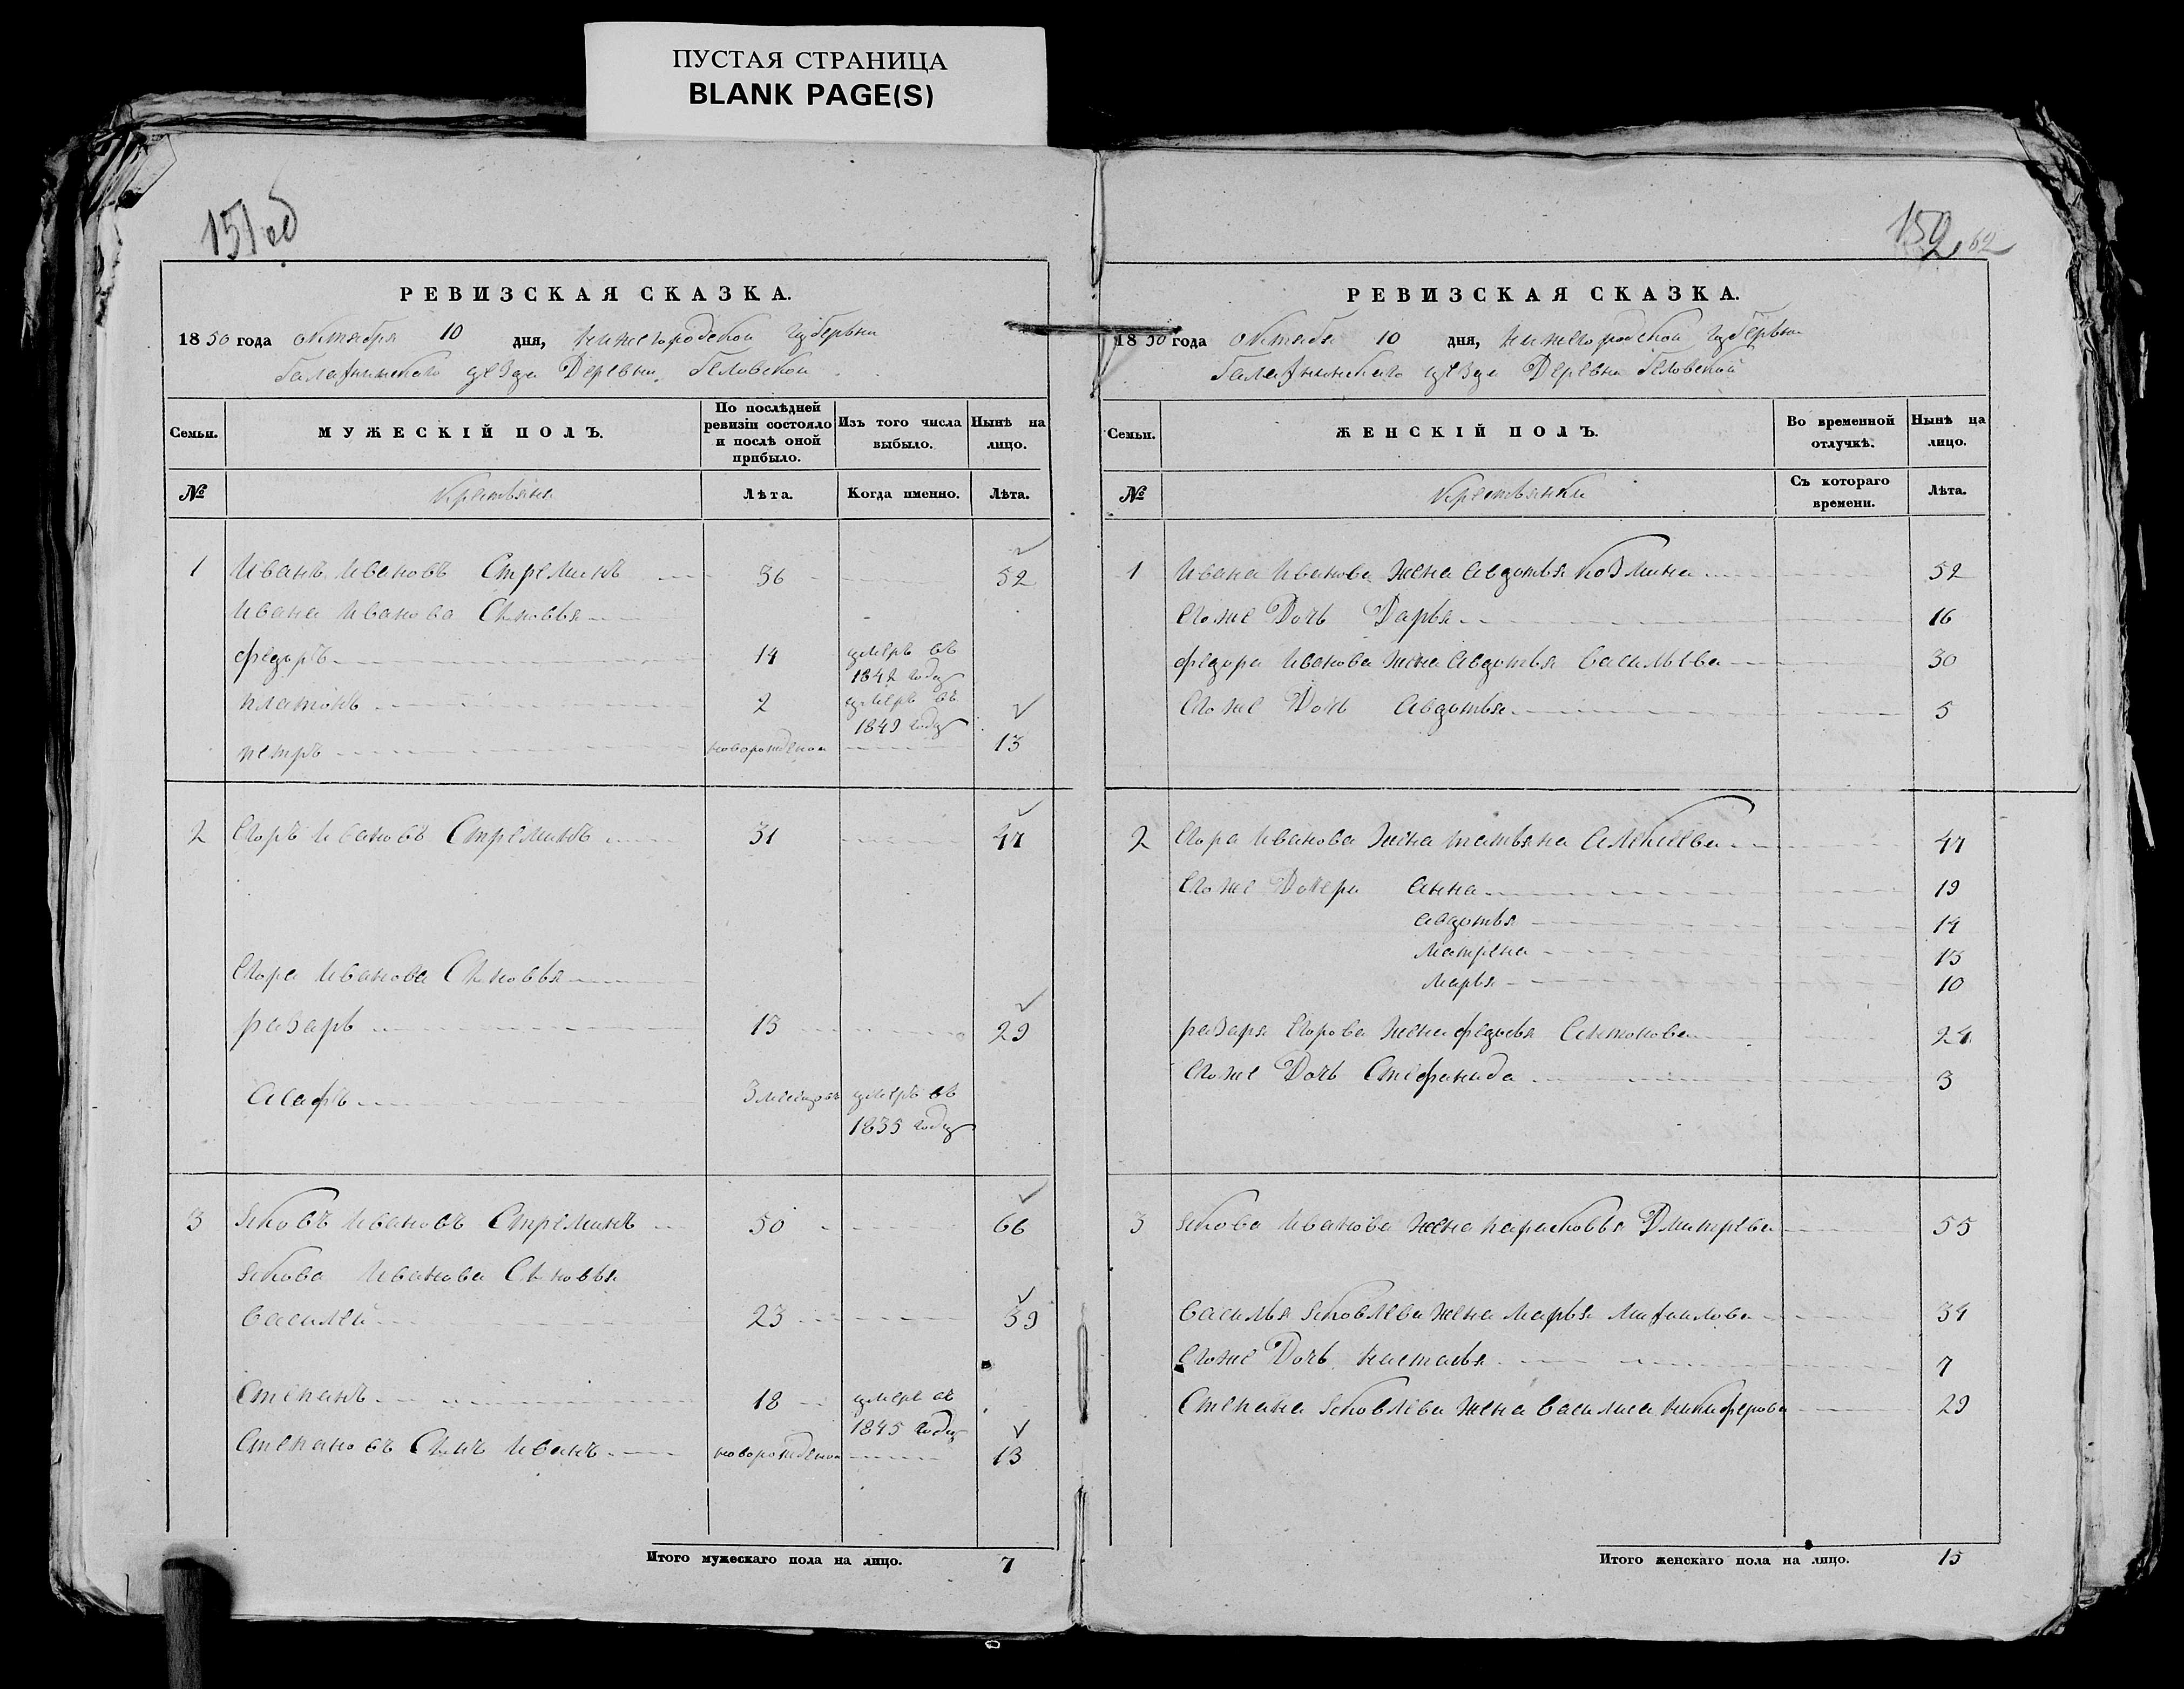 ПУСТАЯ СТРАНИЦА
BLANK PAGE(S)
151 об
РЕВИЗСКАЯ СКАЗКА.
1850 года октября 10 дня, нижегородской губерьни
балахнинского уезда Деревни беловской
Семьи. МУЖЕСКІЙ ПОЛЪ. По послѣдней ревизіи состояло и послѣ оной прибыло. Изъ того числа выбыло. Нынѣ на лицо.
№ Крестьяне Лѣта. Когда именно. Лѣта.
1 Иванъ Ивановъ Стреминъ 36 52
Ивана Иванова Сыновья
федоръ 14 умеръ въ 1842 году
платонъ 2 умеръ въ 1849 году
петръ новорожденой 13
2 Егоръ Ивановъ Стреминъ 31 47
Егора Иванова Сыновья
разаръ 13 29
Асафъ 3 месецовъ умеръ въ 1835 году
3 Яковъ Ивановъ Стреминъ 50 66
Якова Иванова Сыновья
Василей 23 39
Степанъ 18 умеръ въ 1845 году
Степановъ Сынъ Иванъ новорожденой 13
Итого мужескаго пола на лицо. 7
152 62
РЕВИЗСКАЯ СКАЗКА.
1850 года октября 10 дня, нижегородской губерьни
балахнинского уезда Деревни беловской
Семьи. ЖЕНСКІЙ ПОЛЪ. Во временной отлучкѣ. Нынѣ на лицо.
№ Крестьянки Съ котораго времени. Лѣта.
1 Ивана Иванова Жена Авдотья Козмина 52
Егоже Дочь Дарья 16
федора Иванова Жена Авдотья Васильева 30
Егоже Дочь Авдотья 5
2 Егора Иванова Жена татьяна Алексеева 47
Егоже Дочери Анна 19
Авдотья 14
Матрена 13
Марья 10
разаря Егорова Жена федосья Антонова 24
Егоже Дочь Стефанида 3
3 Якова Иванова жена парасковья Дмитрева 55
Василья Яковлева жена Марья Михаилова 34
Егоже Дочь настасья 7
Степана Яковлева жена Василиса никиферова 29
Итого женскаго пола на лицо. 15